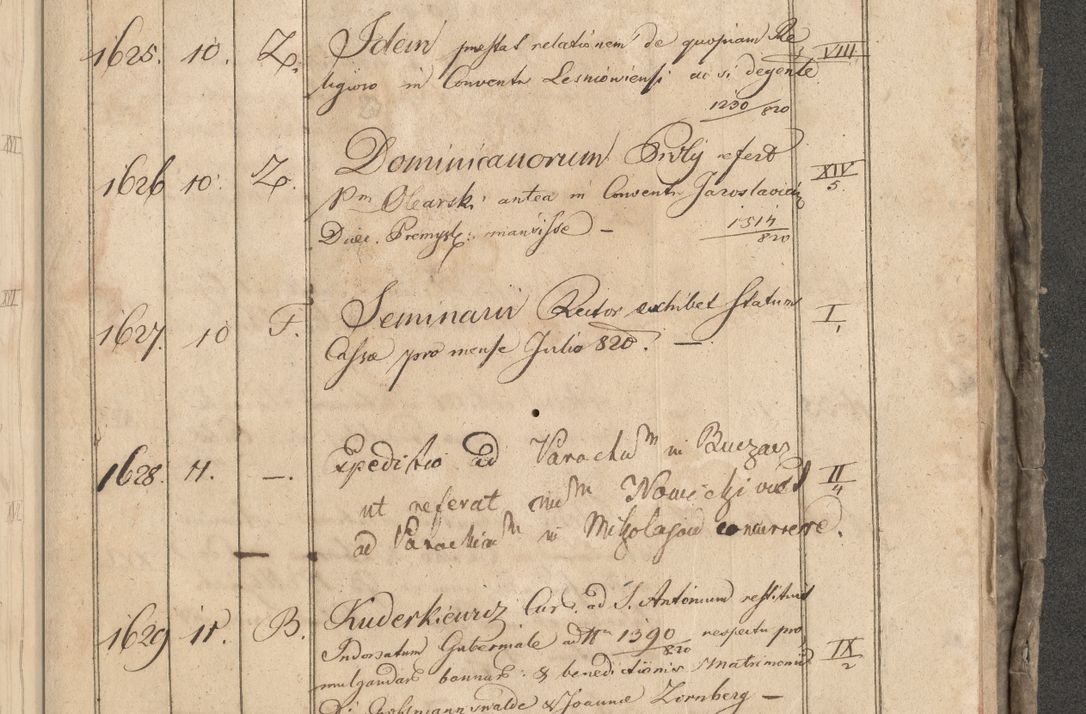 1625. 10. Z. Idem prestat relationem de quopiam Re
ligioso in Conventu Lesniowiensi degente VIII
1230/820
1626 10. Z. Dominicanorum refert
Pm Olearski antea in Conventu Jaroslavien XIV 5.
Diœc. Premysl: mansisse — 1314/820
1627. 10 F. Seminarii Rector exhibet Statum I,
Cassæ pro mense Julio 820. —
1628. 11. —. Expeditio ad Parochum in Buczacz
ut referat num Nowicki II 4
ad Parochiam in Mikolajow concurrere.
1629 11. B. Kuderkiewicz Cur. ad S. Antonium restituit
Indorsatum Guberniale ad Nm 1390/820 respectu pro IX 2
mulgandar bannor: & benedictionis Matrimonii
Di & Joannæ Zornberg —
XVI
XVII
XVI